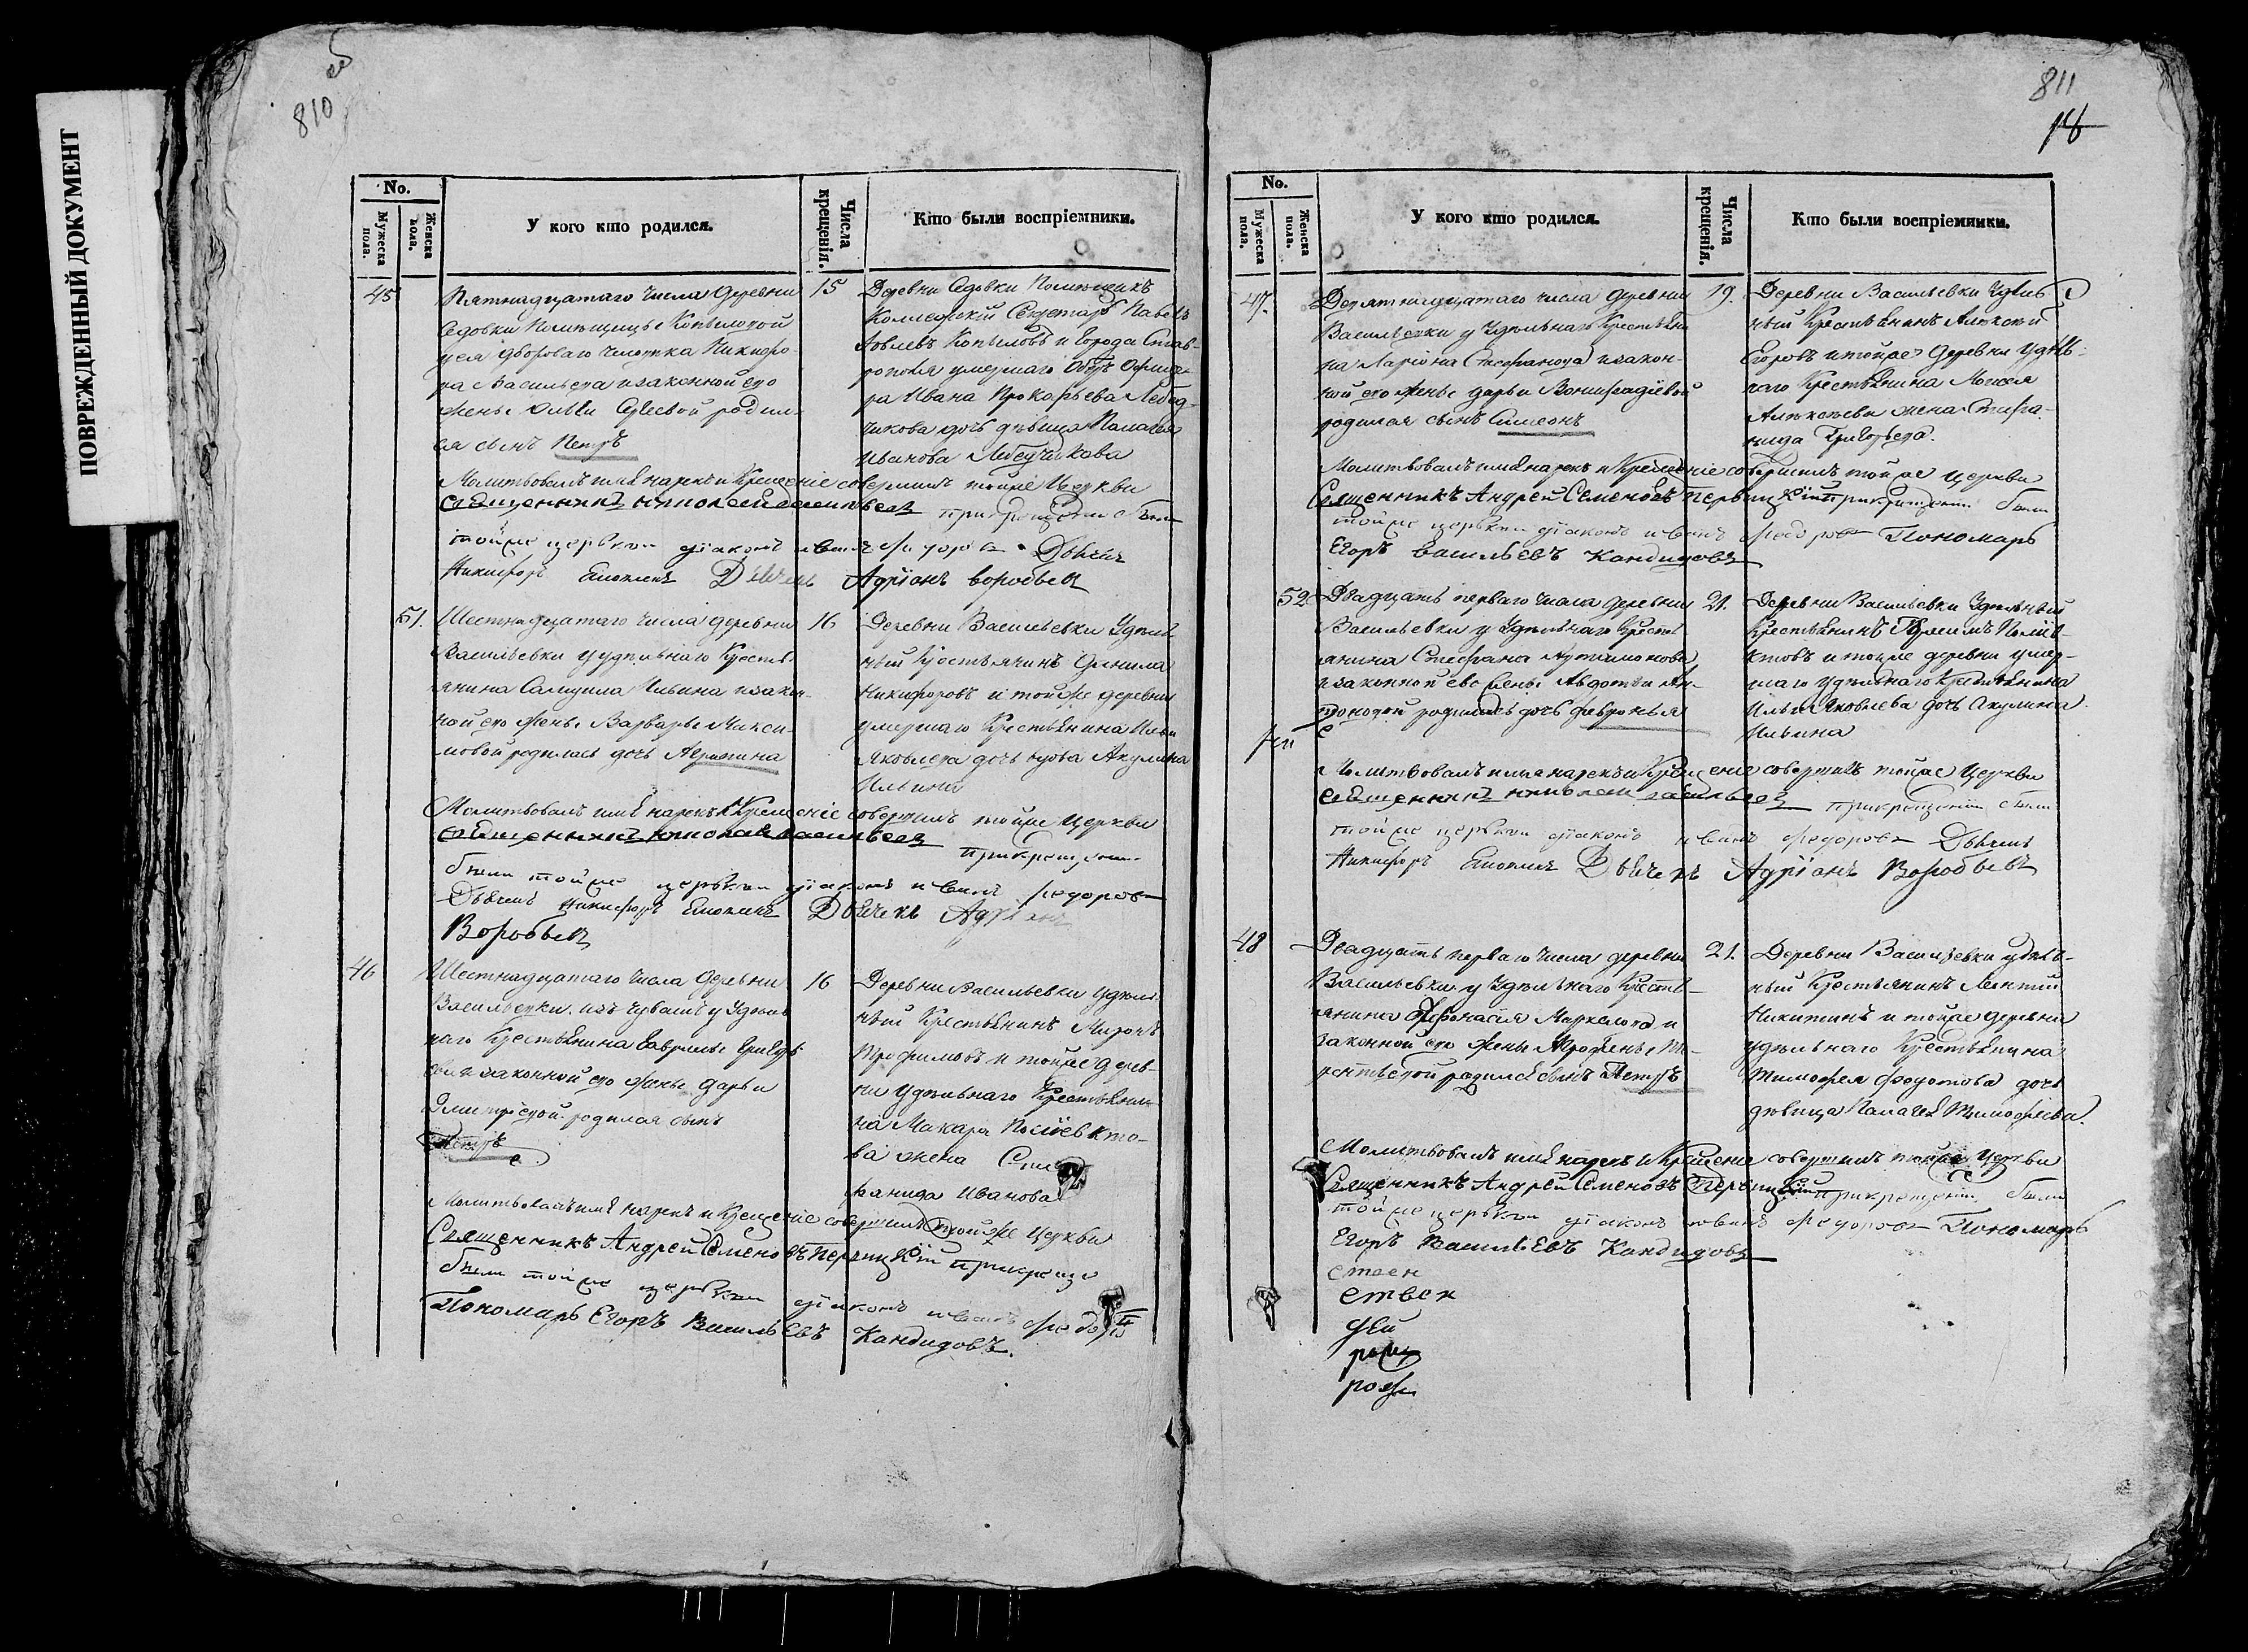 ПОВРЕЖДЕННЫЙ ДОКУМЕНТ
810 об
No.
Мужеска пола.
Женска пола.
У кого кто родился.
Числа крещенія.
Кто были воспріемники.
45
Пятнадцатаго числа Деревни
Седовки Помѣщицы Копыловой
у ея двороваго человѣка Никифо-
ра Васильева и законной его
жены
родил-
ся сынъ Петръ
15
Деревни Седовки Помѣщикъ
Коллежскій Секретарь Павелъ
Копыловъ и Города Став-
рополя умершаго Обер Офице-
ра Ивана Прокофьева Лебед-
чикова дочь дѣвица Палагѣя
Иванова Лебедчикова
Молитвовалъ имя нарекъ и Крещеніе совершилъ тойже Церкви
священникъ николай васильевъ при крещеніи были
тойже церкви діаконъ иванъ федоровъ Дьячекъ
Никифоръ Дьячекъ Адріанъ воробьевъ
51.
Шестнадцатаго числа деревни
Васильевки у удѣльнаго Кресть-
янина Самуила Ильина и закон-
ной его жены Варвары Макси-
мовой родилась дочь Агрипина
16
Деревни Васильевки Удѣль-
ный Крестьянинъ Данила
Никифоровъ и тойже деревни
умершаго Крестьянина Ильи
Яковлева дочь вдова Акулина
Ильина
Молитвовалъ имя нарекъ и Крещеніе совершилъ тойже Церкви
священникъ николай васильевъ при крещеніи
были тойже церкви діаконъ иванъ федоровъ
Дьячекъ Никифоръ Дьячекъ Адріанъ
Воробьевъ
46
Шестнадцатаго числа Деревни
Васильевки изъ чувашъ у Удѣль-
наго Крестьянина Гаврилы Григорь-
ева и законной его жены Дарьи
Дмитріевой родился сынъ
Петръ
16
Деревни Васильевки Удѣль-
ный Крестьянинъ Миронъ
Трофимовъ и тойже дерев-
ни удѣльнаго Крестьяни-
на Макара Поліевкто-
ва жена Сти-
фанида Иванова
Молитвовалъ имя нарекъ и Крещеніе совершилъ тойже Церкви
Священникъ Андрей Семеновъ при креще
были тойже церкви діаконъ иванъ федоров
Пономарь Егоръ Васильевъ Кандидовъ.
811
18
No.
Мужеска пола.
Женска пола.
У кого кто родился.
Числа крещенія.
Кто были воспріемники.
47.
Девятнадцатаго числа деревни
Васильевки у Удѣльнаго Крестьяни-
на Ларіона Стефанова и закон-
ной его жены дарьи Вонифадіевой
родился сынъ Симеонъ
19.
Деревни Васильевки Удѣль-
ный Крестьянинъ Алексѣй
Егоровъ и тойже Деревни Удѣль-
наго Крестьянина Моисея
Алексѣева жена Стифа-
нида Григорьева.
Молитвовалъ имя нарекъ и Крещеніе совершилъ тойже Церкви
Священникъ Андрей Семеновъ при крещеніи были
тойже церкви діаконъ иванъ федоровъ Пономарь
Егоръ васильевъ Кандидовъ
52
Двадцать перваго числа деревни
Васильевки у Удѣльнаго Кресть-
янина Стефана Артамонова
и законной его жены Авдотьи Ан-
тоновой родилась дочь февронья
21.
Деревни Васильевки Удѣльный
Крестьянинъ Поліев-
ктовъ и тойже деревни умер-
шаго удѣльнаго Крестьянина
Ильи Яковлева дочь Акулина
Ильина
Молитвовалъ имя нарекъ и Крещеніе совершилъ тойже Церкви
священникъ николай васильевъ при крещеніи были
тойже церкви діаконъ иванъ федоровъ Дьячекъ
Никифоръ Дьячекъ Адріанъ Воробьевъ
48
Двадцать перваго числа деревни
Васильевки у Удѣльнаго Кресть-
янина Афонасія Маркелова и
законной его жены Те-
рентьевой родился сынъ Петръ
21.
Деревни Васильевки удѣль-
ный Крестьянинъ Леонтій
Никитинъ и тойже деревни
удѣльнаго Крестьянина
Тимофея Федотова дочь
дѣвица Палагѣя Тимофѣева.
Молитвовалъ имя нарекъ и Крещеніе совершилъ тойже Церкви
Священникъ Андрей Семеновъ при крещеніи были
тойже церкви діаконъ иванъ федоровъ Пономарь
Егоръ Васильевъ Кандидовъ
ствен
ствен